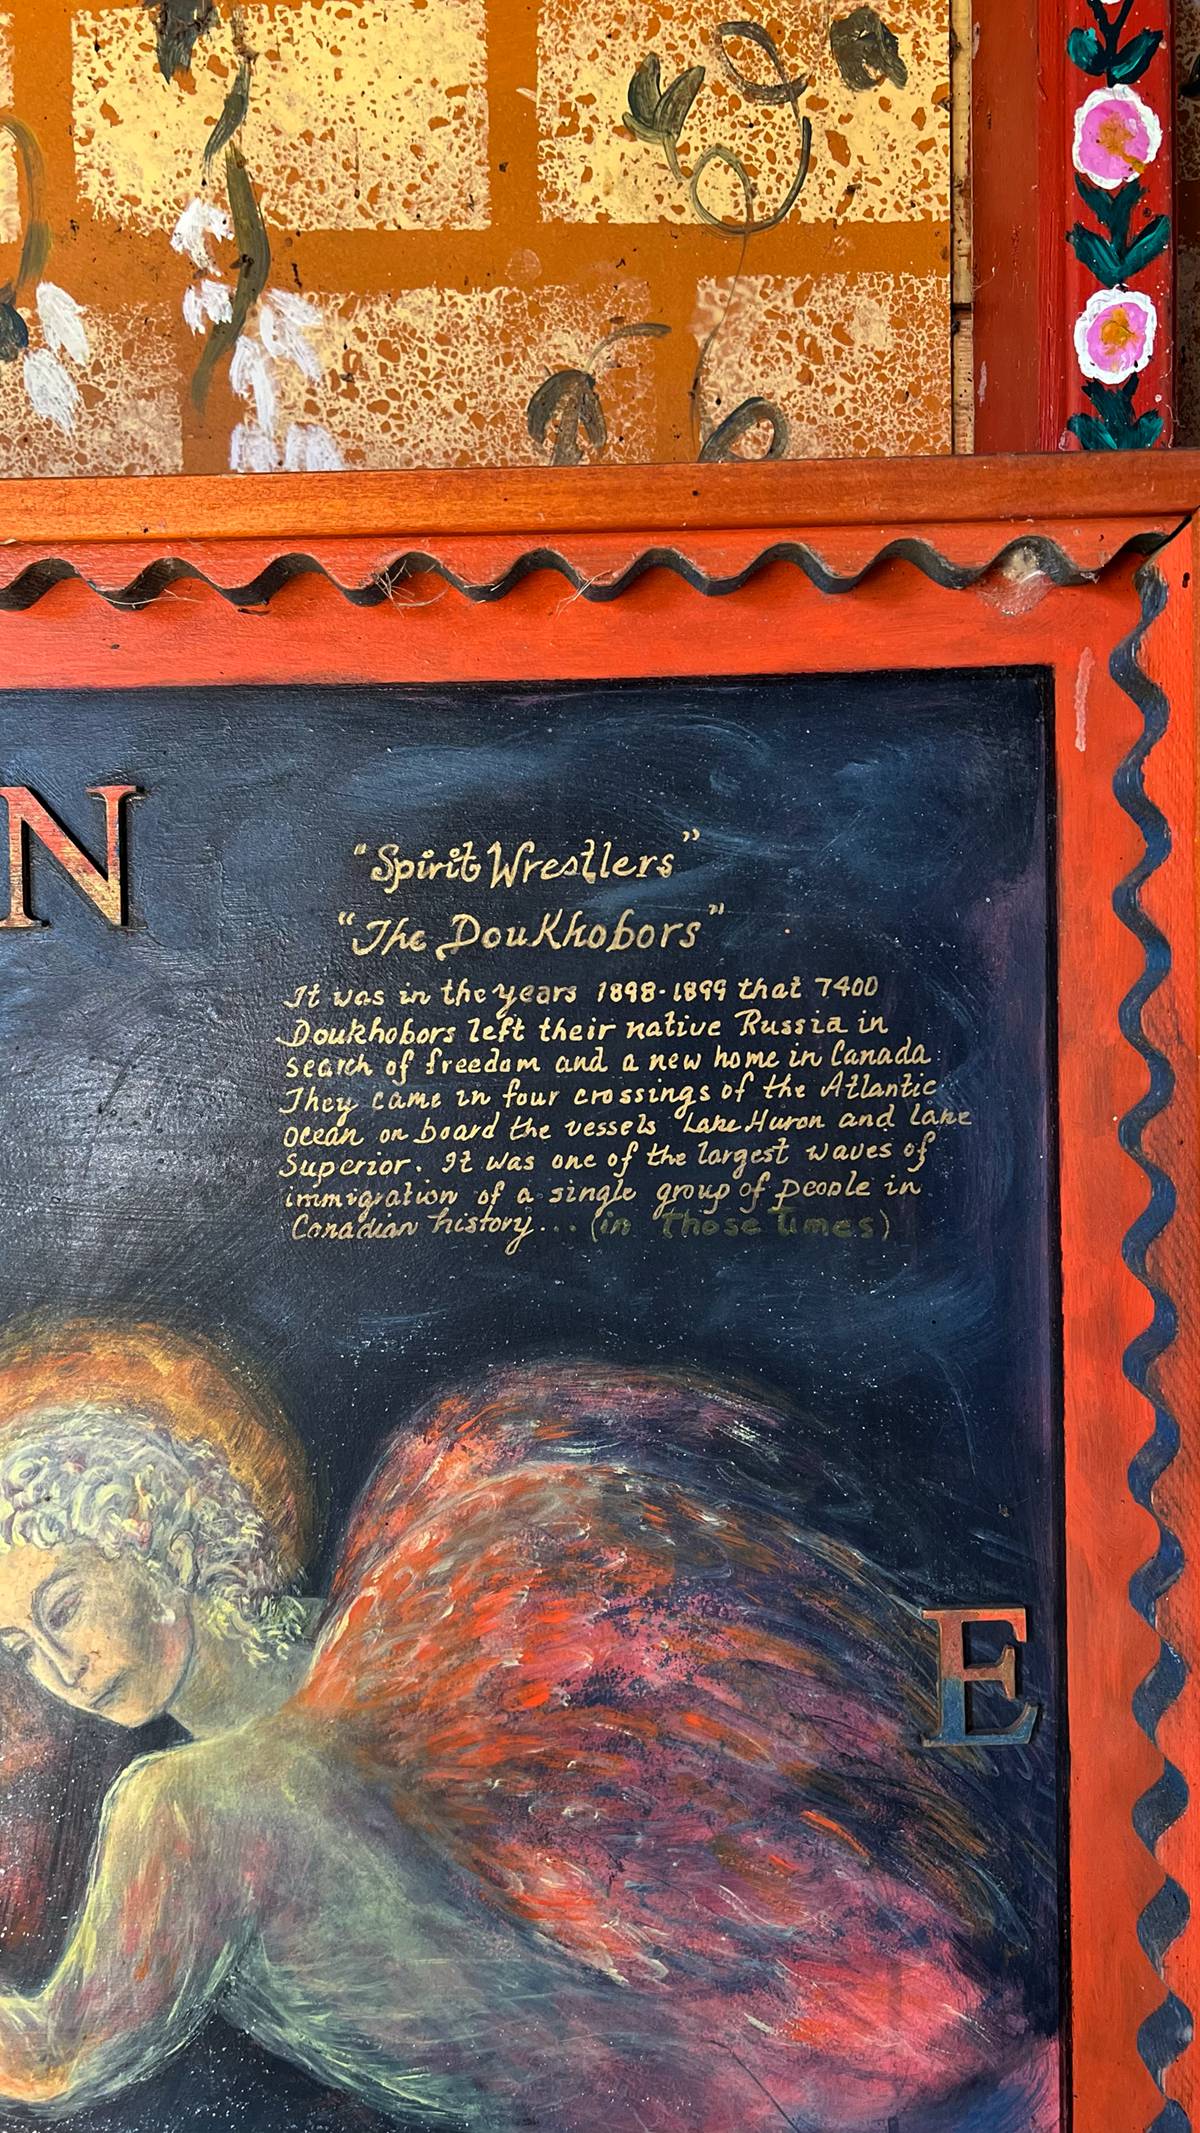 N
"Spirit Wrestlers"
"The DouKhobors"
It was in the years 1898-1899 that 7400
Doukhobors left their native Russia in
search of freedom and a new home in Canada.
They came in four crossings of the Atlantic
ocean on board the vessels Lake Huron and Lake
Superior. It was one of the largest waves of
immigration of a single group of people in
Canadian history... (in those times)
E